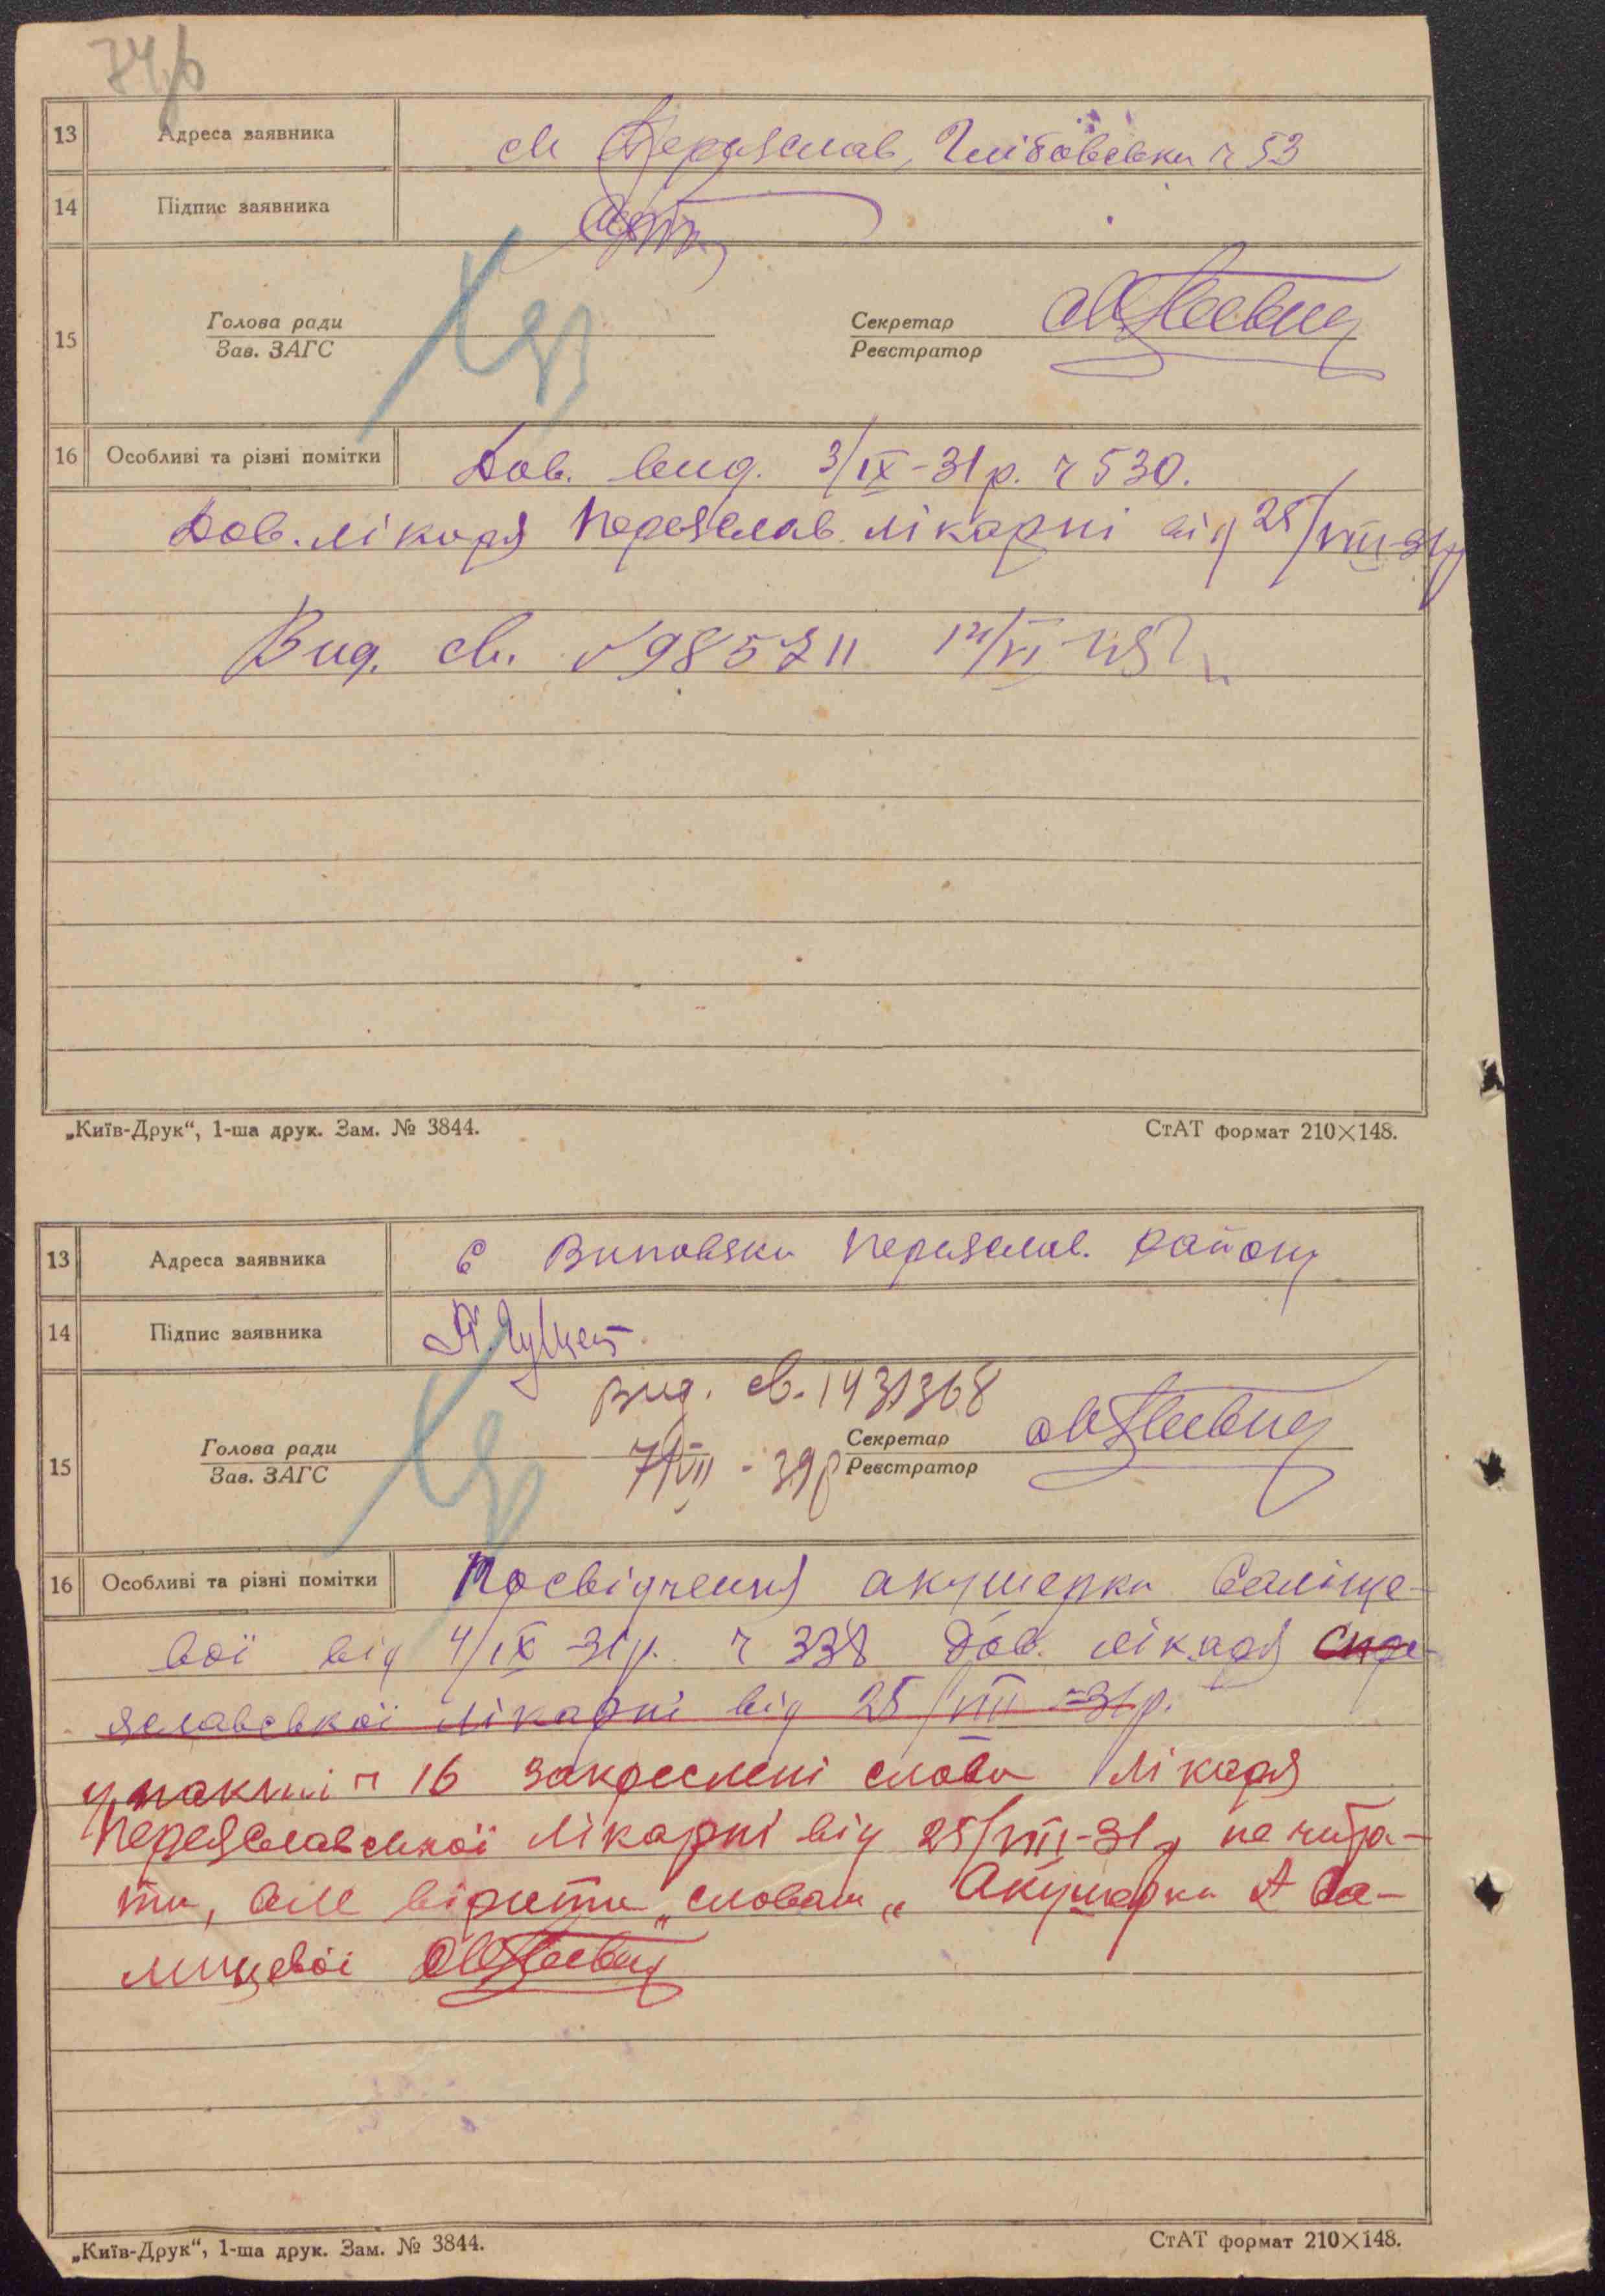 13 Адреса заявника м Переяслав, ч 53
14 Підпис заявника
15 Голова ради Секретар
Зав. ЗАГС Реєстратор
16 Особливі та різні помітки Дов. вид. 3/IX-31р. ч 530.
Дов. лікаря Переяслав. лікарні від 25/VIII-31р
Вид. св.
„Київ-Друк“, 1-ша друк. Зам. № 3844. СтАТ формат 210×148.
13 Адреса заявника с Виповзки Переяслав. району
14 Підпис заявника
вид. св. 1431368
15 Голова ради Секретар
Зав. ЗАГС 7/VII - 39р Реєстратор
16 Особливі та різні помітки Посвідчення акушерки Саліще-
вої від 4/IX-31р. ч 338 Дов. лікаря
яславської лікарні від 25/VIII-31р.
у ч 16 закреслені слова лікаря
Переяславської лікарні від 25/VIII-31р не чита-
ти, але вірити словам „Акушерки
„Київ-Друк“, 1-ша друк. Зам. № 3844. СтАТ формат 210×148.